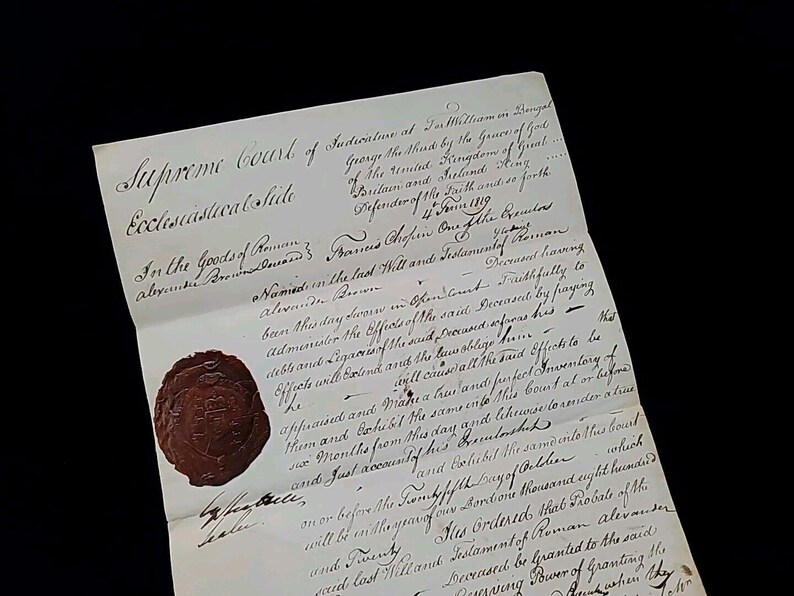 Supreme Court of Judicature at Fort William in Bengal
George the third by the Grace of God
of the United Kingdom of Great
Britain and Ireland King
Ecclesiastical Side
Defender of the Faith and so forth
4th Term 1819
In the Goods of Roman
Alexander Brown Deceased } Francis Chopin One of the Executors
Named in the last Will and Testament of Roman
Alexander Brown Deceased having
been this day Sworn in Open Court Faithfully to
administer the Effects of the said Deceased by paying
debts and Legacies of the said Deceased so far as his
Effects will Extend and the Law oblige him that
he will cause all the said Effects to be
appraised and Make a true and perfect Inventory of
them and Exhibit the same into this Court at or before
six Months from this day and likewise to render a true
and Just account of his Executorship
and Exhibit the same into this Court
on or before the Twenty fifth Day of October which
will be in the year of our Lord one thousand eight hundred
and Twenty It is Ordered that Probate of the
said last Will and Testament of Roman Alexander
Deceased be Granted to the said
Reserving Power of Granting the
when they
Sealer